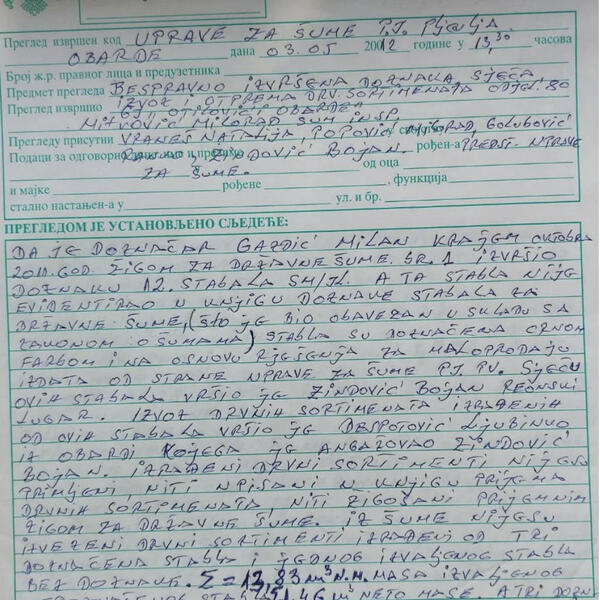 Преглед извршен код UPRAVE ZA ŠUME P.J. Pljevlja
OBARDE дана 03.05 20012 године у 13,30 часова
Број ж.р. правног лица и предузетника
Предмет прегледа BESPRAVNO IZVRŠENA DOZNAKA SJEČA,
IZVOZ I OTPREMA DRV. SORTIMENATA ODJEL. 80
Преглед извршио GJ OBARDE
MITROVIĆ MILORAD ŠUM. INSP.
Прегледу присутни VRANEŠ NATALIJA, POPOVIĆ MILORAD, GOLUBOVIĆ
Подаци за одговорно ZINDOVIĆ BOJAN. рођен-а PREDST. UPRAVE
ZA ŠUME. од оца
и мајке рођене , функција
стално настањен-а у ул. и бр.
ПРЕГЛЕДОМ ЈЕ УСТАНОВЉЕНО СЉЕДЕЋЕ:
DA JE DOZNAČAR GAZDIĆ MILAN KRAJEM OKTOBRA
2011.GOD. ŽIGOM ZA DRŽAVNE ŠUME. BR. 1 IZVRŠIO
DOZNAKU 12. STABALA SM/JL. A TA STABLA NIJE
EVIDENTIRAO U KNJIGU DOZNAKE STABALA ZA
DRŽAVNE ŠUME, (ŠTO JE BIO OBAVEZAN U SKLADU SA
ZAKONOM O ŠUMAMA) STABLA SU DOZNAČENA CRNOM
FARBOM I NA OSNOVU RJEŠENJA ZA MALOPRODAJU
IZDATA OD STRANE UPRAVE ZA ŠUME P.J. PV. SJEČU
OVIH STABALA VRŠIO JE ZINDOVIĆ BOJAN REONSKI
LUGAR. IZVOZ DRVNIH SORTIMENATA IZRAĐENIH
OD OVIH STABALA VRŠIO JE DESPOTOVIĆ LJUBINKO
IZ OBARDI KOJEGA JE ANGAŽOVAO ZINDOVIĆ
BOJAN. IZRAĐENI DRVNI SORTIMENTI NIJESU
PRIMLJENI, NITI UPISANI U KNJIGU PRIJEMA
DRVNIH SORTIMENATA, NITI ŽIGOSANI PRIJEMNIM
ŽIGOM ZA DRŽAVNE ŠUME. IZ ŠUME NIJESU
IZVEZENI DRVNI SORTIMENTI IZRAĐENI OD TRI
DOZNAČENA STABLA I JEDNOG IZVALJENOG STABLA
BEZ DOZNAKE. Σ=13,83 m³ N.M. MASA IZVALJENOG
STABLA 1,46 m³ NETO MASE. A TRI DOZN